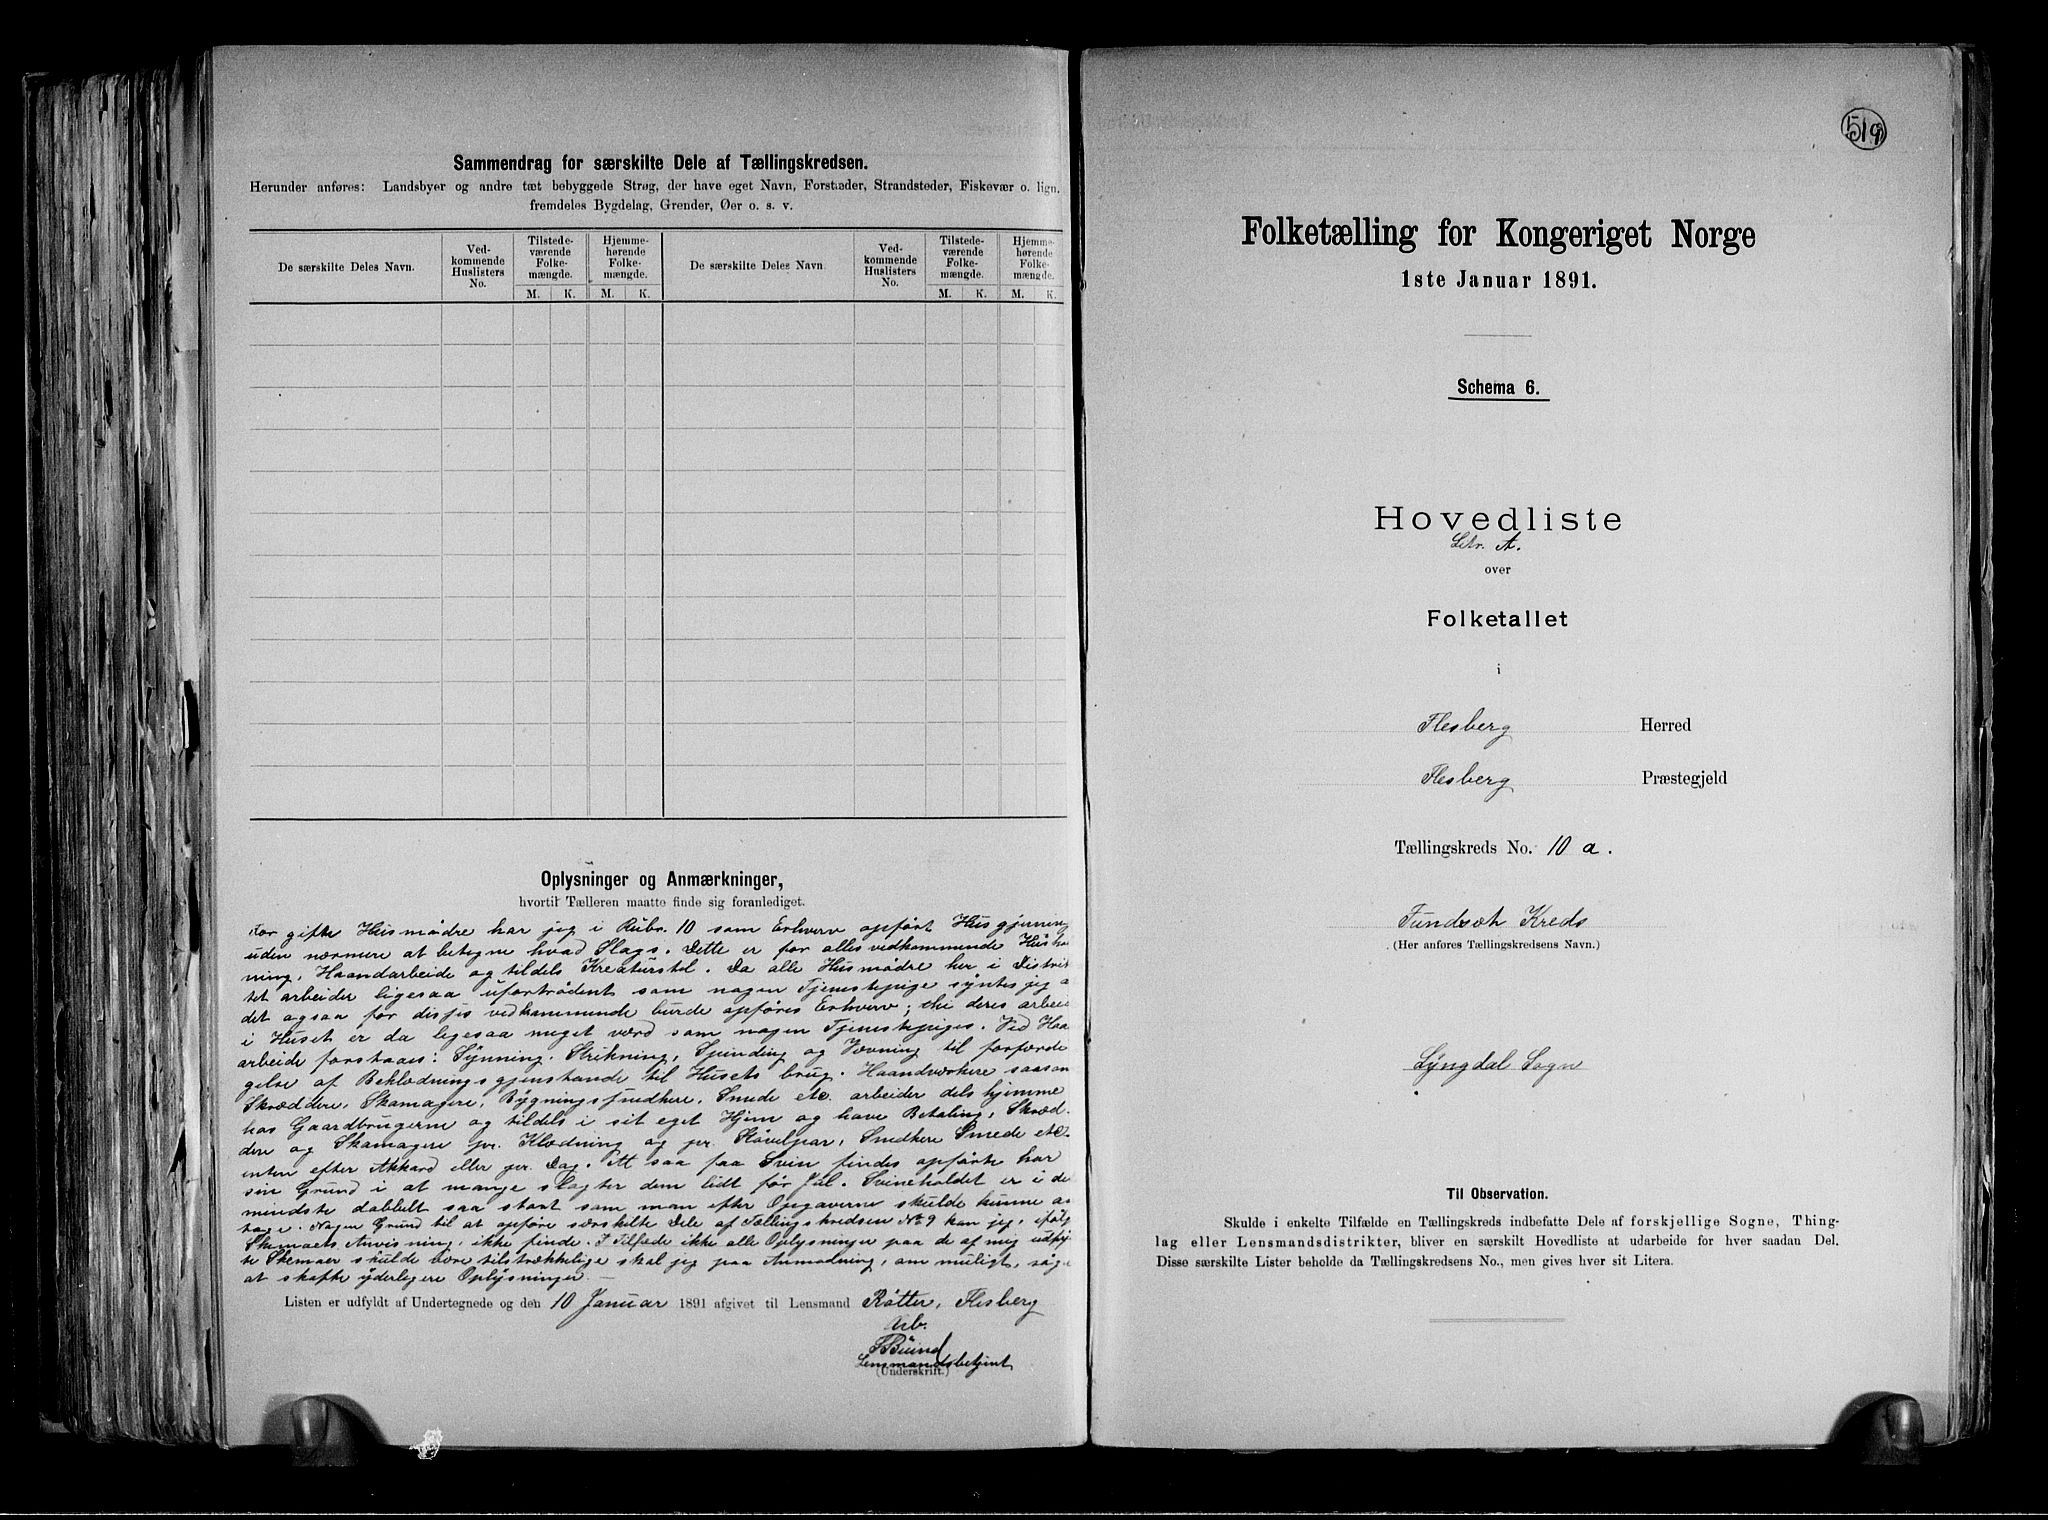 Sammendrag for særskilte Dele af Tællingskredsen.
Herunder anføres: Landsbyer og andre tæt bebyggede Strøg, der have eget Navn, Forstæder, Strandsteder, Fiskevær o. lign.
fremdeles Bygdelag, Grender, Øer o. s. v.
De særskilte Deles Navn. Ved-kommende Huslisters No. Tilstede-værende Folke-mængde. Hjemme-hørende Folke-mængde. De særskilte Deles Navn. Ved-kommende Huslisters No. Tilstede-værende Folke-mængde. Hjemme-hørende Folke-mængde.
M. K. M. K. M. K. M. K.
Oplysninger og Anmærkninger,
hvortil Tælleren maatte finde sig foranlediget.
For gifte Husmødre har jeg i Rubr. 10 som Erhverv opført Husgjerning
uden nærmere at betegne hvad Slags. Dette er for alles vedkommende Hushold
ning, Haandarbeide og tildels Kreaturstel. Da alle Husmødre her i Distrik
tet arbeider ligesaa ufortrødent som nogen Tjenestepige syntes jeg a
det ogsaa for disses vedkommende burde opføres Erhverv; thi deres arbei
i Huset er da ligesaa meget værd som nogen Tjenestepiges. Ved Haa
arbeide forstaaes: Sÿning, Strikning, Spinding og Vævning til forfærdi
gelse af Beklædningsgjenstande til Husets brug. Haandværkere saasom
Skræddere, Skomagere, Bÿgningssnedkere, Smede etc. arbeider dels hjemme
hos Gaardbrugerne og tildels i sit eget Hjem og have Betaling, Skræd-
dere og Skomagere pr. Klædning og pr. Støvelpar, Snedkere Smede etc.
enten efter Akkord eller pr. Dag. At saa faa Svin findes opførte har
sin Grund i at mange slagter dem lidt før Jul. Svineholdet er i de
mindste dobbelt saa stort som man efter Opgaverne skulde kunne an
tage. Nogen Grund til at opføre særskilte Dele af Tællingskredsen No 9 kan jeg, ifølg
Skemaets Anvisning, ikke finde. I Tilfælde ikke alle Oplysninger paa de af mig udfyl
te Skemaer skulde være tilstrækkelige skal jeg paa Anmodning, om muligt, søge
at skaffe ÿderligere Oplÿsninger. —
Listen er udfyldt af Undertegnede og den 10 Januar 1891 afgivet til Lensmand Røtter, Flesberg
Arb.
Lensmandsbetjent
(Underskrift.)
519
Folketælling for Kongeriget Norge
1ste Januar 1891.
Schema 6.
Hovedliste
Litr. A.
over
Folketallet
i
Flesberg Herred
Flesberg Præstegjeld
Tællingskreds No. 10 a.
Fundsæth Kreds
(Her anføres Tællingskredsens Navn.)
Lÿngdal Sogn
Til Observation.
Skulde i enkelte Tilfælde en Tællingskreds indbefatte Dele af forskjellige Sogne, Thing-
lag eller Lensmandsdistrikter, bliver en særskilt Hovedliste at udarbeide for hver saadan Del.
Disse særskilte Lister beholde da Tællingskredsens No., men gives hver sit Litera.